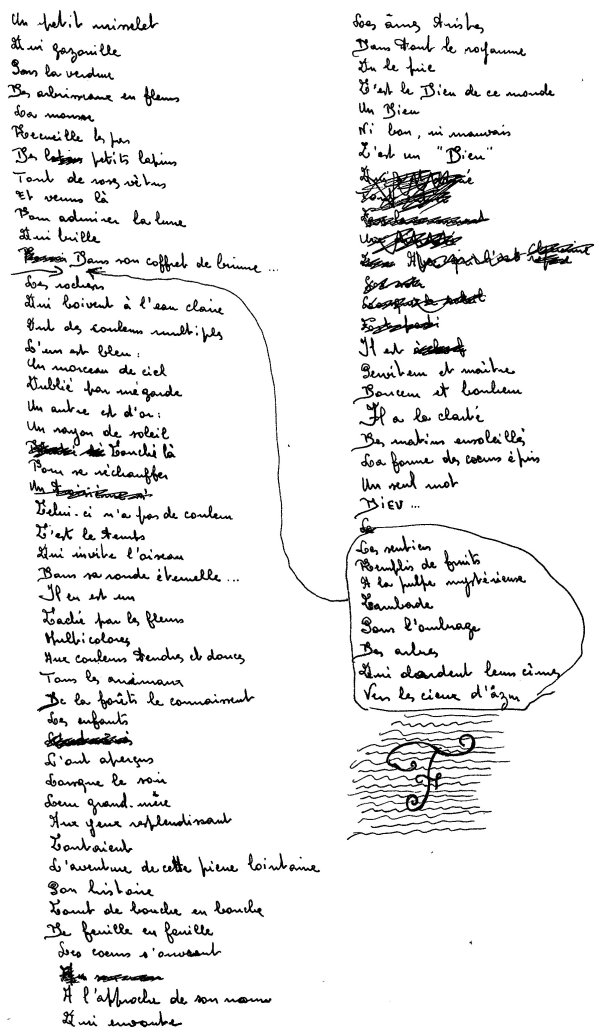 Un petit ruisselet
Qui gazouille
Sous la verdure
Des arbrisseaux en fleurs
La mousse
Recueille les pas
Des petits lapins
Tout de roses vêtus
Et venus là
Pour admirer la lune
Qui brille
Dans son coffret de brume ...
Les rochers
Qui boivent à l'eau claire
Ont des couleurs multiples
L'un est bleu :
Un morceau de ciel
Oublié par mégarde
Un autre est d'or :
Un rayon de soleil
Couché là
Pour se réchauffer
Un troisième
Celui-ci n'a pas de couleur
C'est le temps
Qui invite l'oiseau
Dans sa ronde éternelle ...
Il en est un
Caché par les fleurs
Multicolores
Aux couleurs tendres et douces
Tous les animaux
De la forêts le connaissent
Les enfants
L'ont aperçus
Lorsque le soir
Leur grand-mère
Aux yeux resplendissant
Contaient
L'aventure de cette pierre lointaine
Son histoire
Court de bouche en bouche
De feuille en feuille
Les coeurs s'ouvrent
A l'approche de son nom
Qui envoûte
Les âmes tristes
Dans tout le royaume
On le prie
C'est le Dieu de ce monde
Un Dieu
Ni bon, ni mauvais
C'est un "Dieu"
Qui
Il est
Serviteur et maître
Douceur et bonheur
Il a la clarté
Des matins ensoleillés
La forme des coeurs épris
Un seul mot
DIEU ...
Le
Les sentiers
Remplis de fruits
A la pulpe mystérieuse
Sous l'ombrage
Des arbres
Qui dardent leurs cîmes
Vers les cieux d'âzur